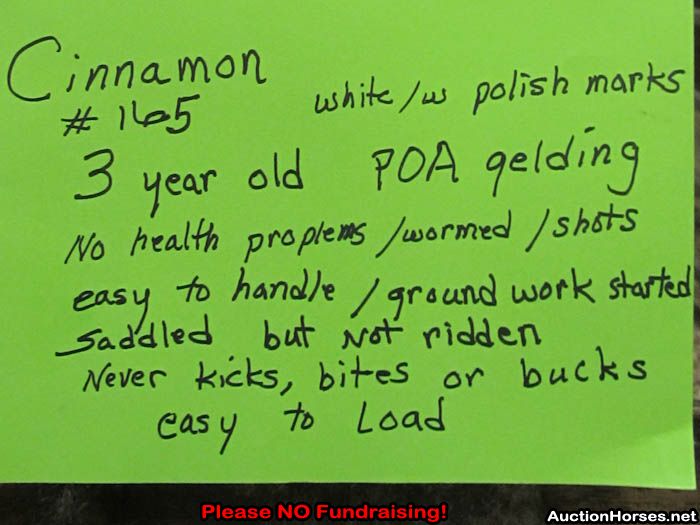 Cinnamon
# 165
white/w polish marks
3 year old POA gelding
No health proplems /wormed /shots
easy to handle / ground work started
saddled but Not ridden
Never kicks, bites or bucks
easy to Load
Please NO Fundraising!
AuctionHorses.net